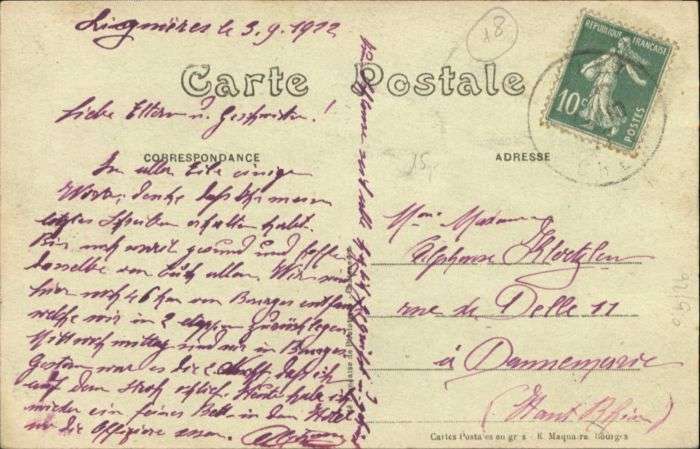 Lignières le 3.9.1922
18
RÉPUBLIQUE FRANÇAISE
10c
POSTES
Carte Postale
Liebe Eltern u. Geschwister!
CORRESPONDANCE
ADRESSE
In aller Eile einige
Worte; denke daß Ihr mein
letztes Schreiben erhalten habt.
Bin noch gesund und hoffe
dasselbe von Euch allen. Wir sind
hier noch 46 km von Bourges entfernt
welche wir in 2 etappen zurücklegen
Mittwoch mittag sind wir in Bourges
Gestern war es die daß ich
auf dem Stroh schlief. Heute habe ich
wieder ein feines Bett in dem Hotel
wo die Offiziere essen.
Madame
Alphonse
rue de Delle 11
à Dannemarie
(Haut Rhin)
Cartes Postales en gros - E. Maquaire, Bourges